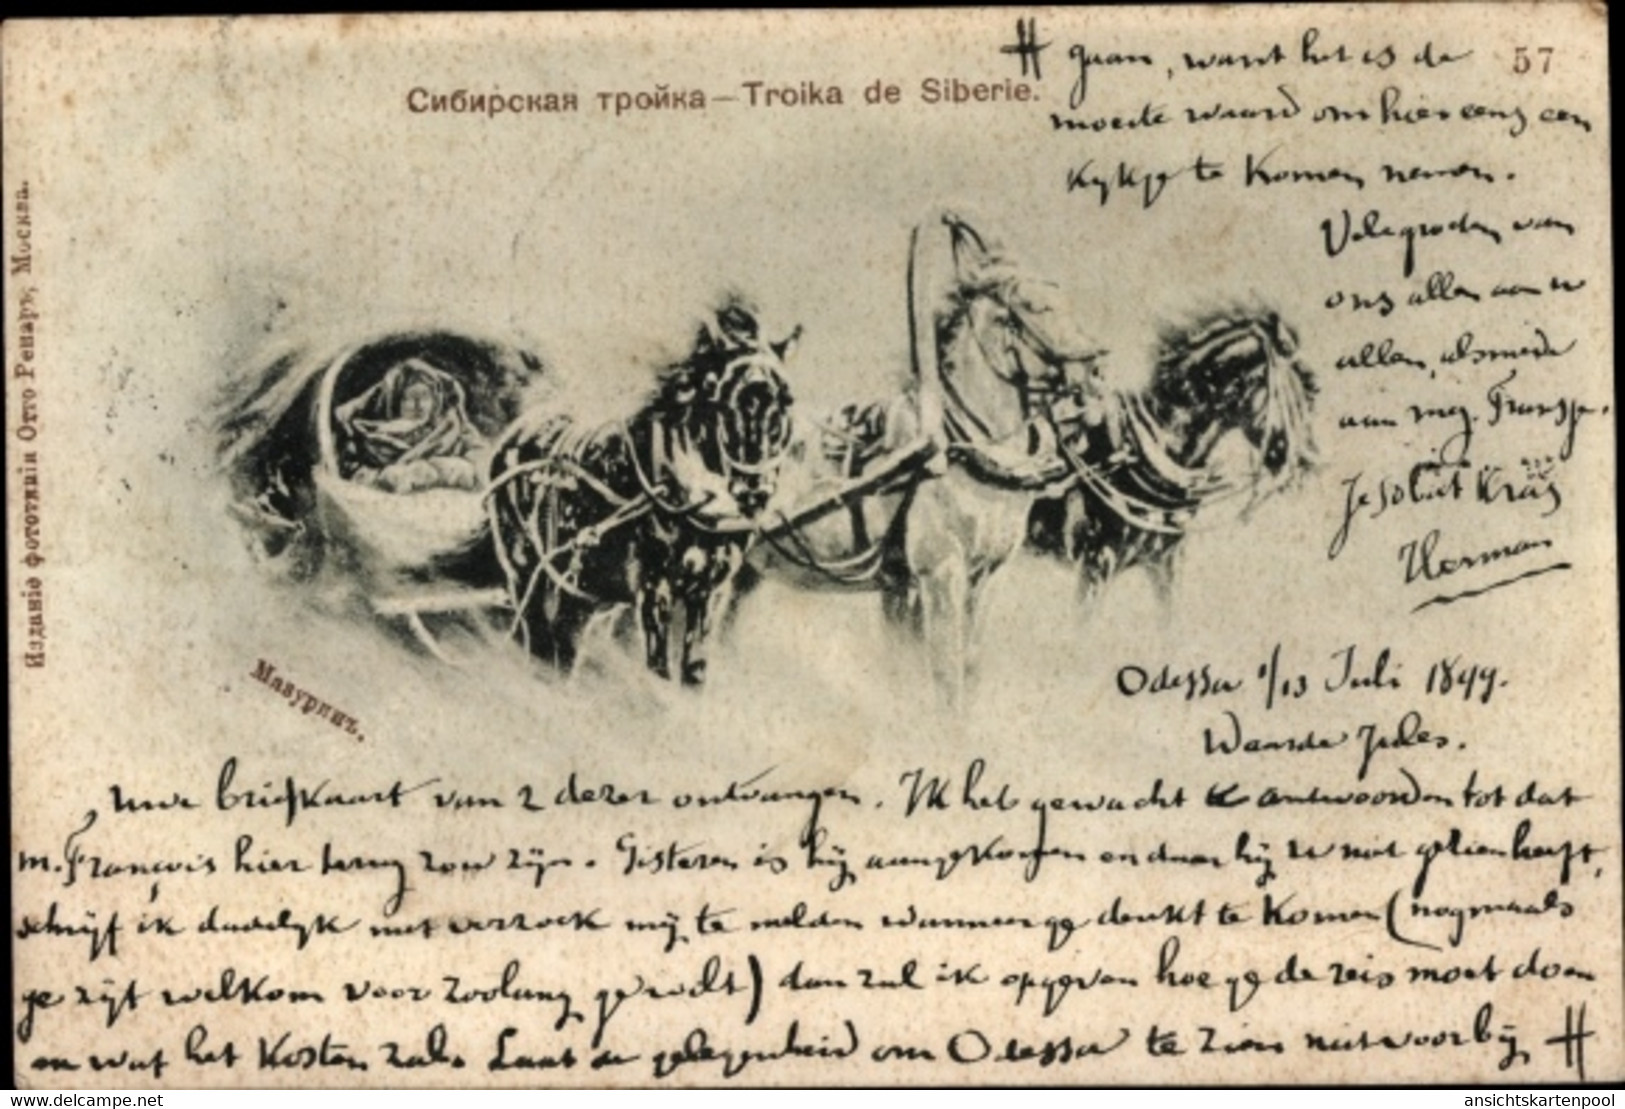 57
Сибирская тройка — Troika de Siberie.
Изданіе фототипіи Отто Ренаръ, Москва.
Мазуринъ.
Odessa 1/13 Juli 1899.
Waarde Jules.
Uwe briefkaart van 2 dezer ontvangen. Ik heb gewacht te antwoorden tot dat
m. François hier terug zou zijn. Gisteren is hij aangekomen en daar hij u niet gezien heeft,
schrijf ik dadelijk met verzoek mij te melden wanneer ge denkt te komen (nogmaals
ge zijt welkom voor zoolang ge wilt) dan zal ik opgeven hoe ge de reis moet doen
en wat het kosten zal. Laat de gelegenheid om Odessa te zien niet voorbij #
# gaan, want het is de
moeite waard om hier eens een
kykje te komen nemen.
Vele groeten van
ons allen aan u
allen, alsmede
aan mej. Fransje.
Je Herman